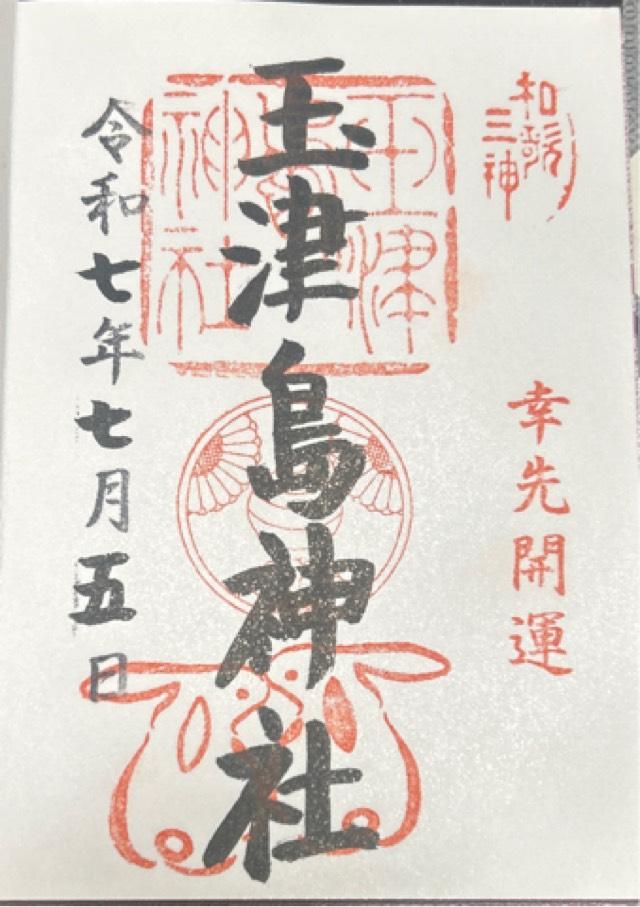 和歌三神
幸先開運
玉津島神社
玉津島神社
令和七年七月五日